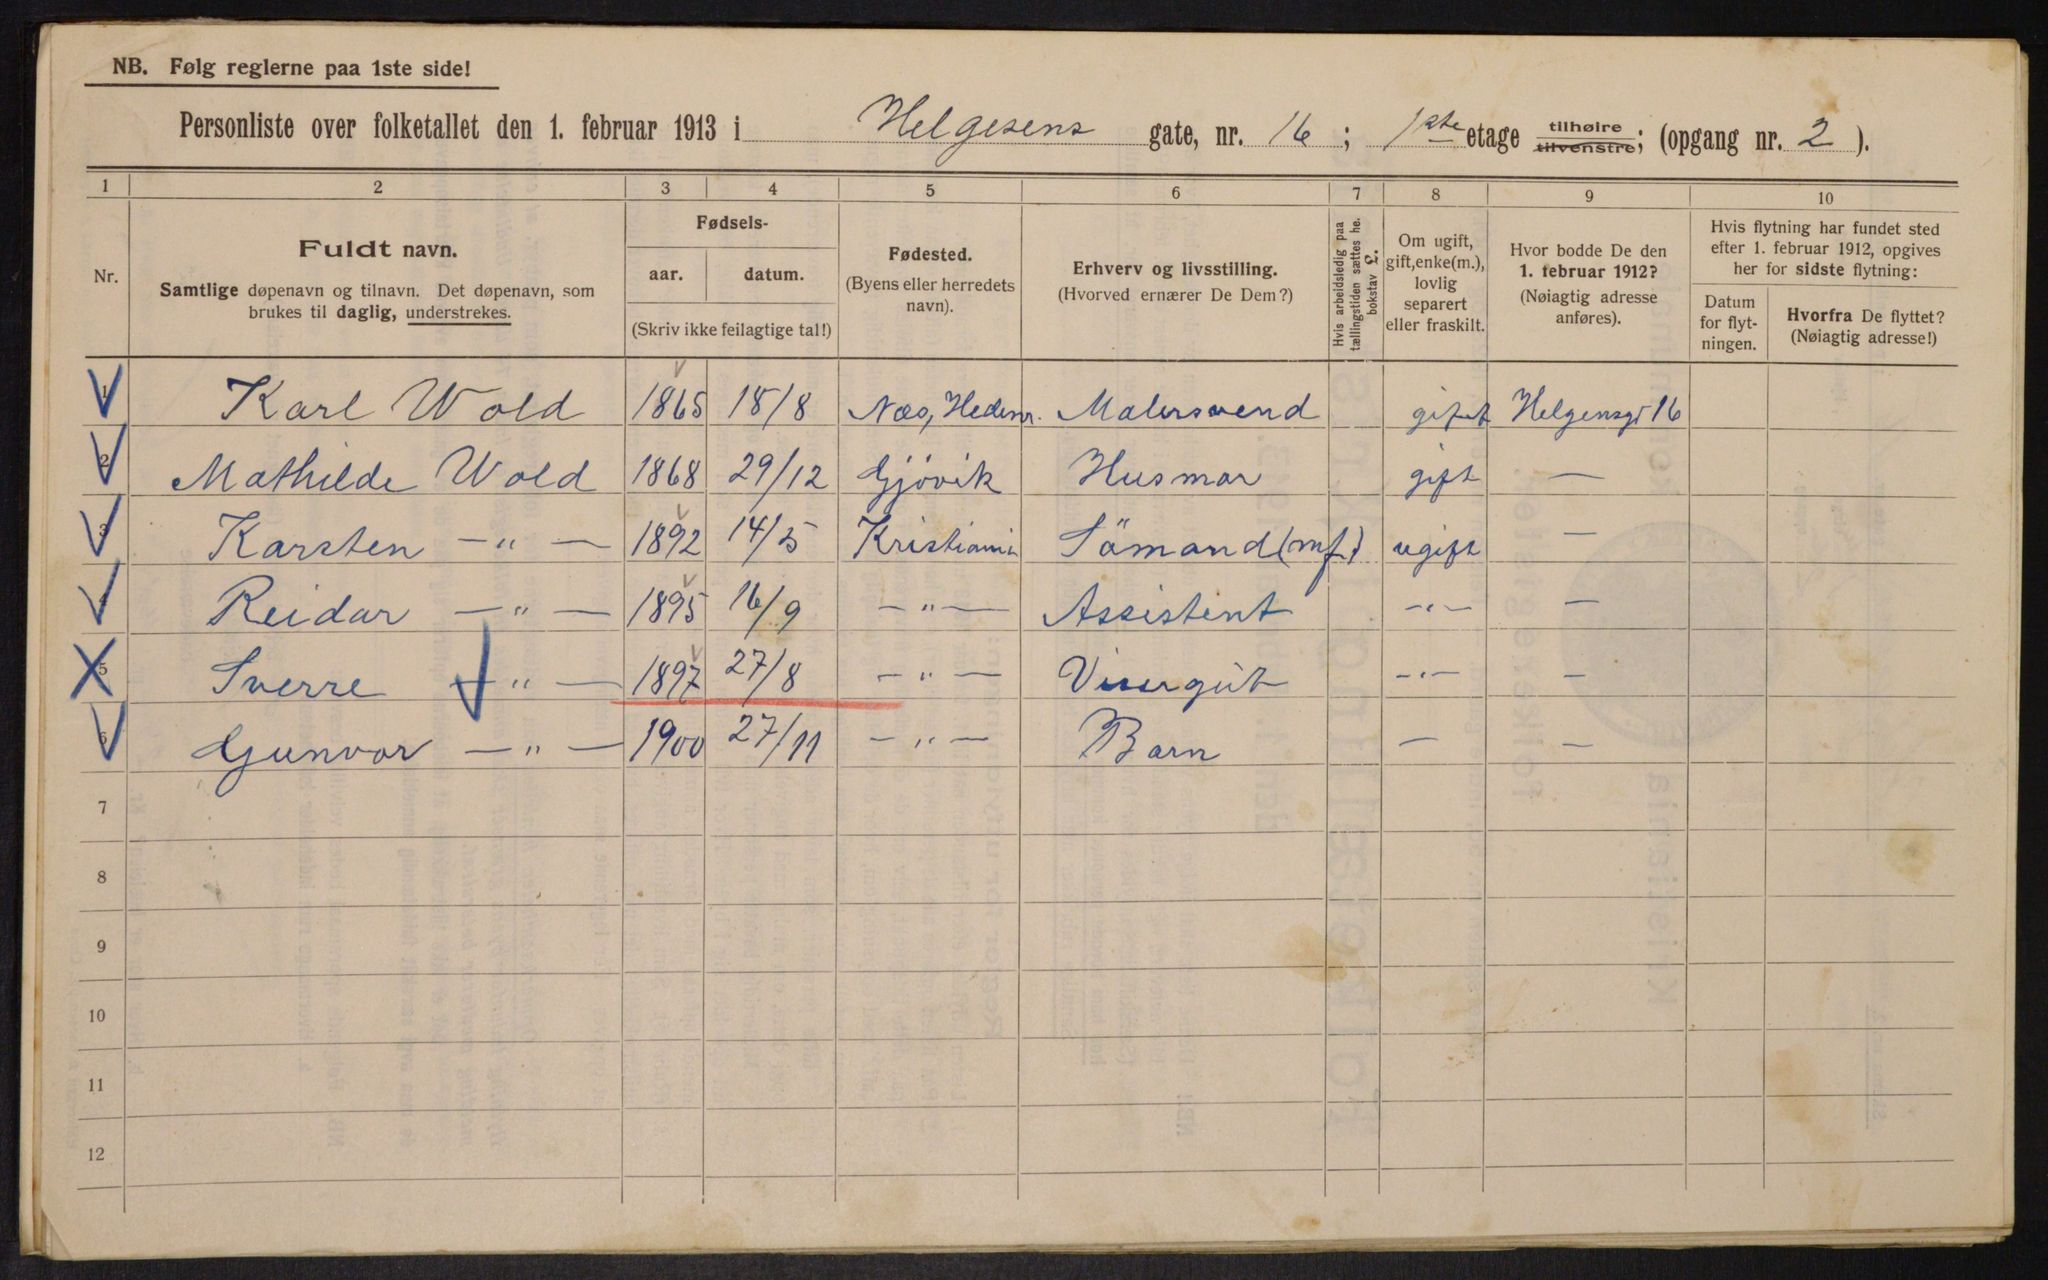 NB. Følg reglerne paa 1ste side!
Personliste over folketallet den 1. februar 1913 i Helgesens gate, nr. 16; 1ste etage tilhøire tilvenstre; (opgang nr. 2).
1 2 3 4 5 6 7 8 9 10
Nr.
Fuldt navn.
Samtlige døpenavn og tilnavn. Det døpenavn, som
brukes til daglig, understrekes.
Fødsels-
aar. datum.
(Skriv ikke feilagtige tal!)
Fødested.
(Byens eller herredets
navn).
Erhverv og livsstilling.
(Hvorved ernærer De Dem?)
Hvis arbeidsledig paa
tællingstiden sættes he.
bokstav £.
Om ugift,
gift, enke(m.),
lovlig
separert
eller fraskilt.
Hvor bodde De den
1. februar 1912?
(Nøiagtig adresse
anføres).
Hvis flytning har fundet sted
efter 1. februar 1912, opgives
her for sidste flytning:
Datum
for flyt-
ningen.
Hvorfra De flyttet?
(Nøiagtig adresse!)
1 Karl Wold 1865 18/8 Næs, Hedem. Malersvend giftet Helgensgt 16
2 Mathilde Wold 1868 29/12 Gjövik Husmor gift —
3 Karsten —"— 1892 14/5 Kristiania Sömand (mf.) ugift —
4 Reidar —"— 1895 16/9 —"— Assistent —"— —
5 Sverre —"— 1897 27/8 —"— Visergut —"— —
6 Gunvor —"— 1900 27/11 —"— Barn — —
7
8
9
10
11
12